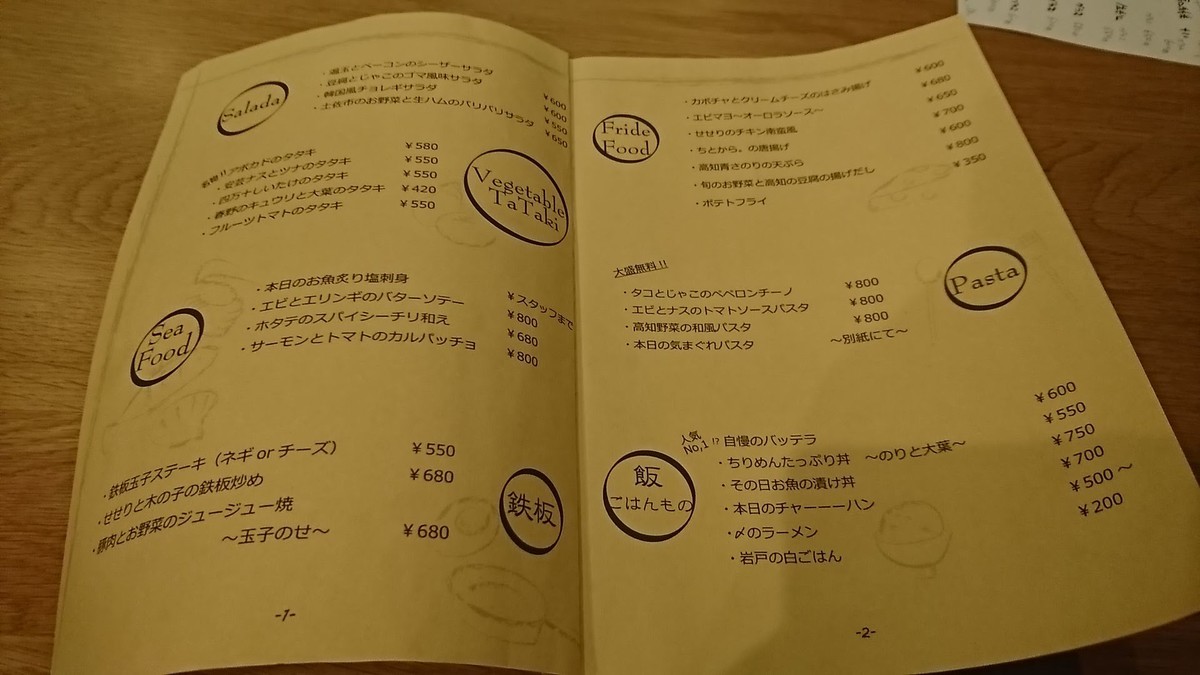 Salada
・温玉とベーコンのシーザーサラダ ¥600
・豆腐とじゃこのゴマ風味サラダ ¥600
・韓国風チョレギサラダ ¥550
・土佐市のお野菜と生ハムのバリバリサラダ ¥650
Vegetable TaTaki
名物!!アボカドのタタキ ¥580
・安芸ナスとツナのタタキ ¥550
・四万十しいたけのタタキ ¥550
・春野のキュウリと大葉のタタキ ¥420
・フルーツトマトのタタキ ¥550
Sea Food
・本日のお魚炙り塩刺身 ¥スタッフまで
・エビとエリンギのバターソテー ¥800
・ホタテのスパイシーチリ和え ¥680
・サーモンとトマトのカルパッチョ ¥800
鉄板
・鉄板玉子ステーキ(ネギorチーズ) ¥550
・せせりと木の子の鉄板炒め ¥680
・豚肉とお野菜のジュージュー焼
～玉子のせ～ ¥680
-1-
Fride Food
・カボチャとクリームチーズのはさみ揚げ ¥600
・エビマヨ～オーロラソース～ ¥680
・せせりのチキン南蛮風 ¥650
・ちとから。の唐揚げ ¥700
・高知青さのりの天ぷら ¥600
・旬のお野菜と高知の豆腐の揚げだし ¥800
・ポテトフライ ¥350
Pasta
大盛無料!!
・タコとじゃこのペペロンチーノ ¥800
・エビとナスのトマトソースパスタ ¥800
・高知野菜の和風パスタ ¥800
・本日の気まぐれパスタ ～別紙にて～
飯
ごはんもの
人気No,1!?自慢のバッテラ ¥600
・ちりめんたっぷり丼 ～のりと大葉～ ¥550
・その日お魚の漬け丼 ¥750
・本日のチャーーーハン ¥700
・〆のラーメン ¥500～
・岩戸の白ごはん ¥200
-2-